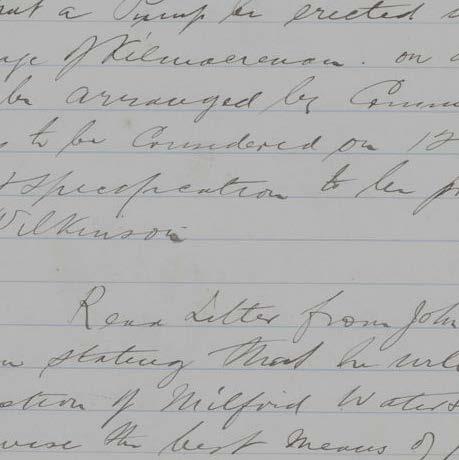 a Pump be erected
of Kilmacrenan. on
be arranged by
to be Considered on 12
Specification to be
Wilkinson
Read Letter from John
stating that he
of Milford Water
the best Means of